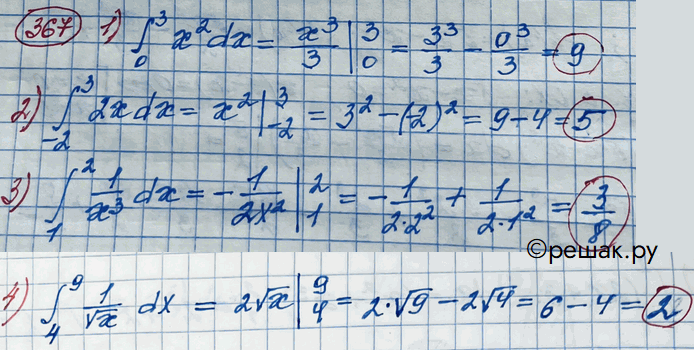 367 1) ∫₀³ x² dx = x³/3 |₀³ = 3³/3 − 0³/3 = 9
2) ∫₋₂³ 2x dx = x² |₋₂³ = 3² − (−2)² = 9 − 4 = 5
3) ∫₁² 1/x³ dx = − 1/2x² |₁² = − 1/2·2² + 1/2·1² = 3/8
©решак.ру
4) ∫₄⁹ 1/√x dx = 2√x |₄⁹ = 2·√9 − 2√4 = 6 − 4 = 2